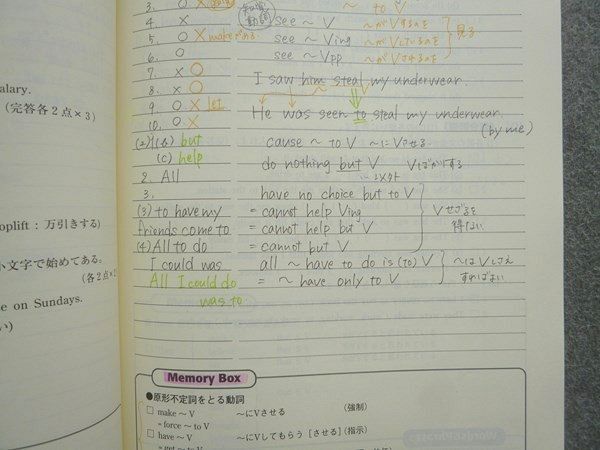 alary.
(完答各2点×3)
oplift : 万引きする)
小文字で始めてある。
(各2点×2
e on Sundays.
い)
3. ○ ×
~ to V
4. ×
知覚動詞
see ~ V ~がVするのを
5. ○ × make
see ~ Ving ~がVしているのを
見る
6. ○
see ~ Vpp ~がVされるのを
7. × ○
I saw him steal my underwear.
8. × ○
9. ○ × let
He was seen to steal my underwear.
10. ○ ×
(by me)
but
cause ~ to V ~にVさせる
(c) help
do nothing but V Vばかりする
2. All
以外
3.
have no choice but to V
(3) to have my
= cannot help Ving
Vせざるを
friends come to
= cannot help but V
得ない
(4) All to do
= cannot but V
I could was
all ~ have to do is (to) V
~はVしさえ
All I could do
= ~ have only to V
すればよい
was to
Memory Box
●原形不定詞をとる動詞
□ make ~ V ~にVさせる (強制)
= force ~ to V
□ have ~ V ~にVしてもらう [させる] (指示)
= get ~ to V